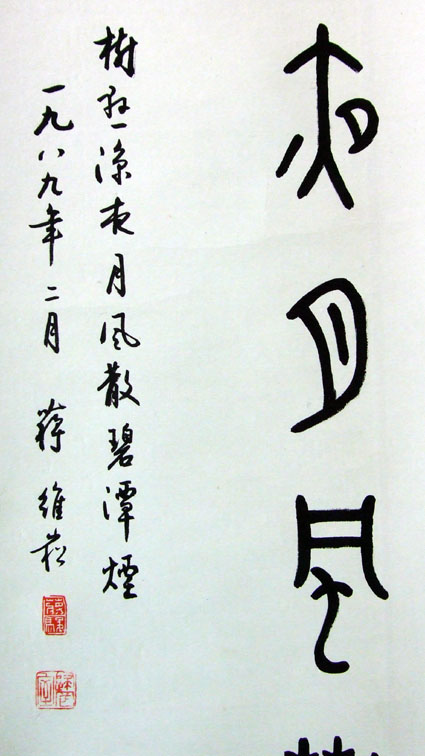 夜月風
樹涼夜月風散碧潭煙
一九八九年二月 蔣維崧